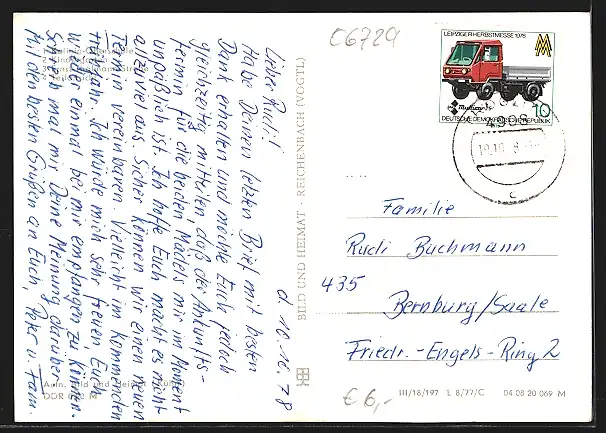 06729
LEIPZIGER HERBSTMESSE 1978
Multicar 25
10
DEUTSCHE DEMOKRATISCHE REPUBLIK
d. 10.10.78
Lieber Rudi!
Habe Deinen letzten Brief mit bestem
Dank erhalten und möchte Euch jedoch
gleichzeitig mitteilen, daß der Ankunfts-
termin für die beiden Mädels mir im Moment
unpäßlich ist. Ich hoffe Euch macht es nicht
allzuviel aus. Sicher können wir einen neuen
Termin vereinbaren. Vielleicht im kommenden
Ich würde mich sehr freuen Euch
wieder einmal bei mir empfangen zu können.
Schreib mal mir Deine Meinung darüber.
Mit den besten Grüßen an Euch, Peter u. Fam.
BILD UND HEIMAT · REICHENBACH (VOGTL)
Familie
Rudi Buchmann
435
Bernburg/Saale
Friedr.-Engels-Ring 2
€ 6,-
III/18/197 L 8/77/C 04 08 20 069 M